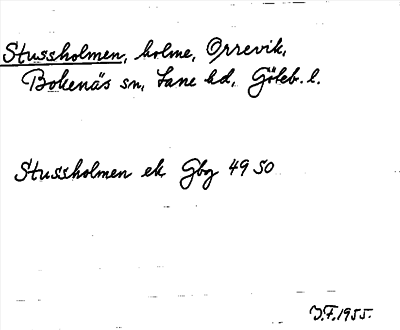 Stussholmen, holme, Orrevik,
Bokenäs sn, Lane hd, Göteb. l.
Stussholmen ek Gbg 49 50
J.F. 1955.